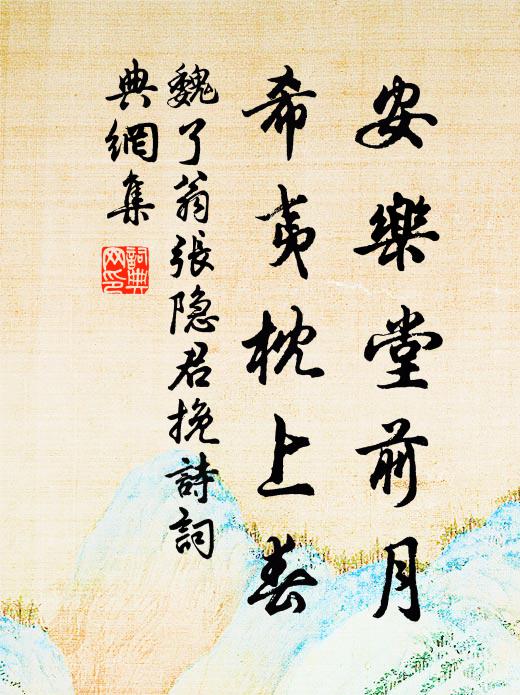 安樂堂前月
希夷枕上春
魏了翁張隐君挽詩詞
典網集
詞典
网印